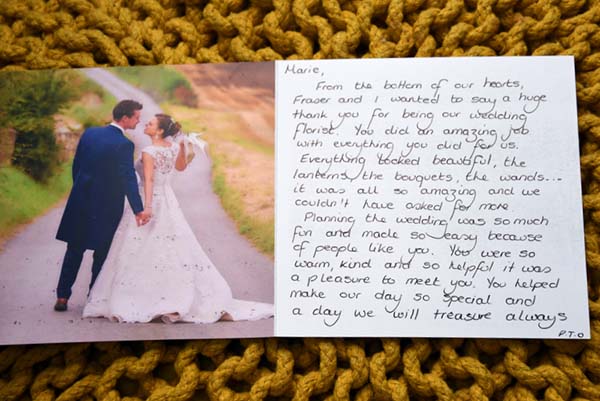 Marie,
From the bottom of our hearts,
Fraser and I wanted to say a huge
thank you for being our wedding
florist. You did an amazing job
with everything you did for us.
Everything looked beautiful, the
lanterns, the bouquets, the wands...
it was all so amazing and we
couldn't have asked for more.
Planning the wedding was so much
fun and made so easy because
of people like you. You were so
warm, kind and so helpful it was
a pleasure to meet you. You helped
make our day so special and
a day we will treasure always
P.T.O